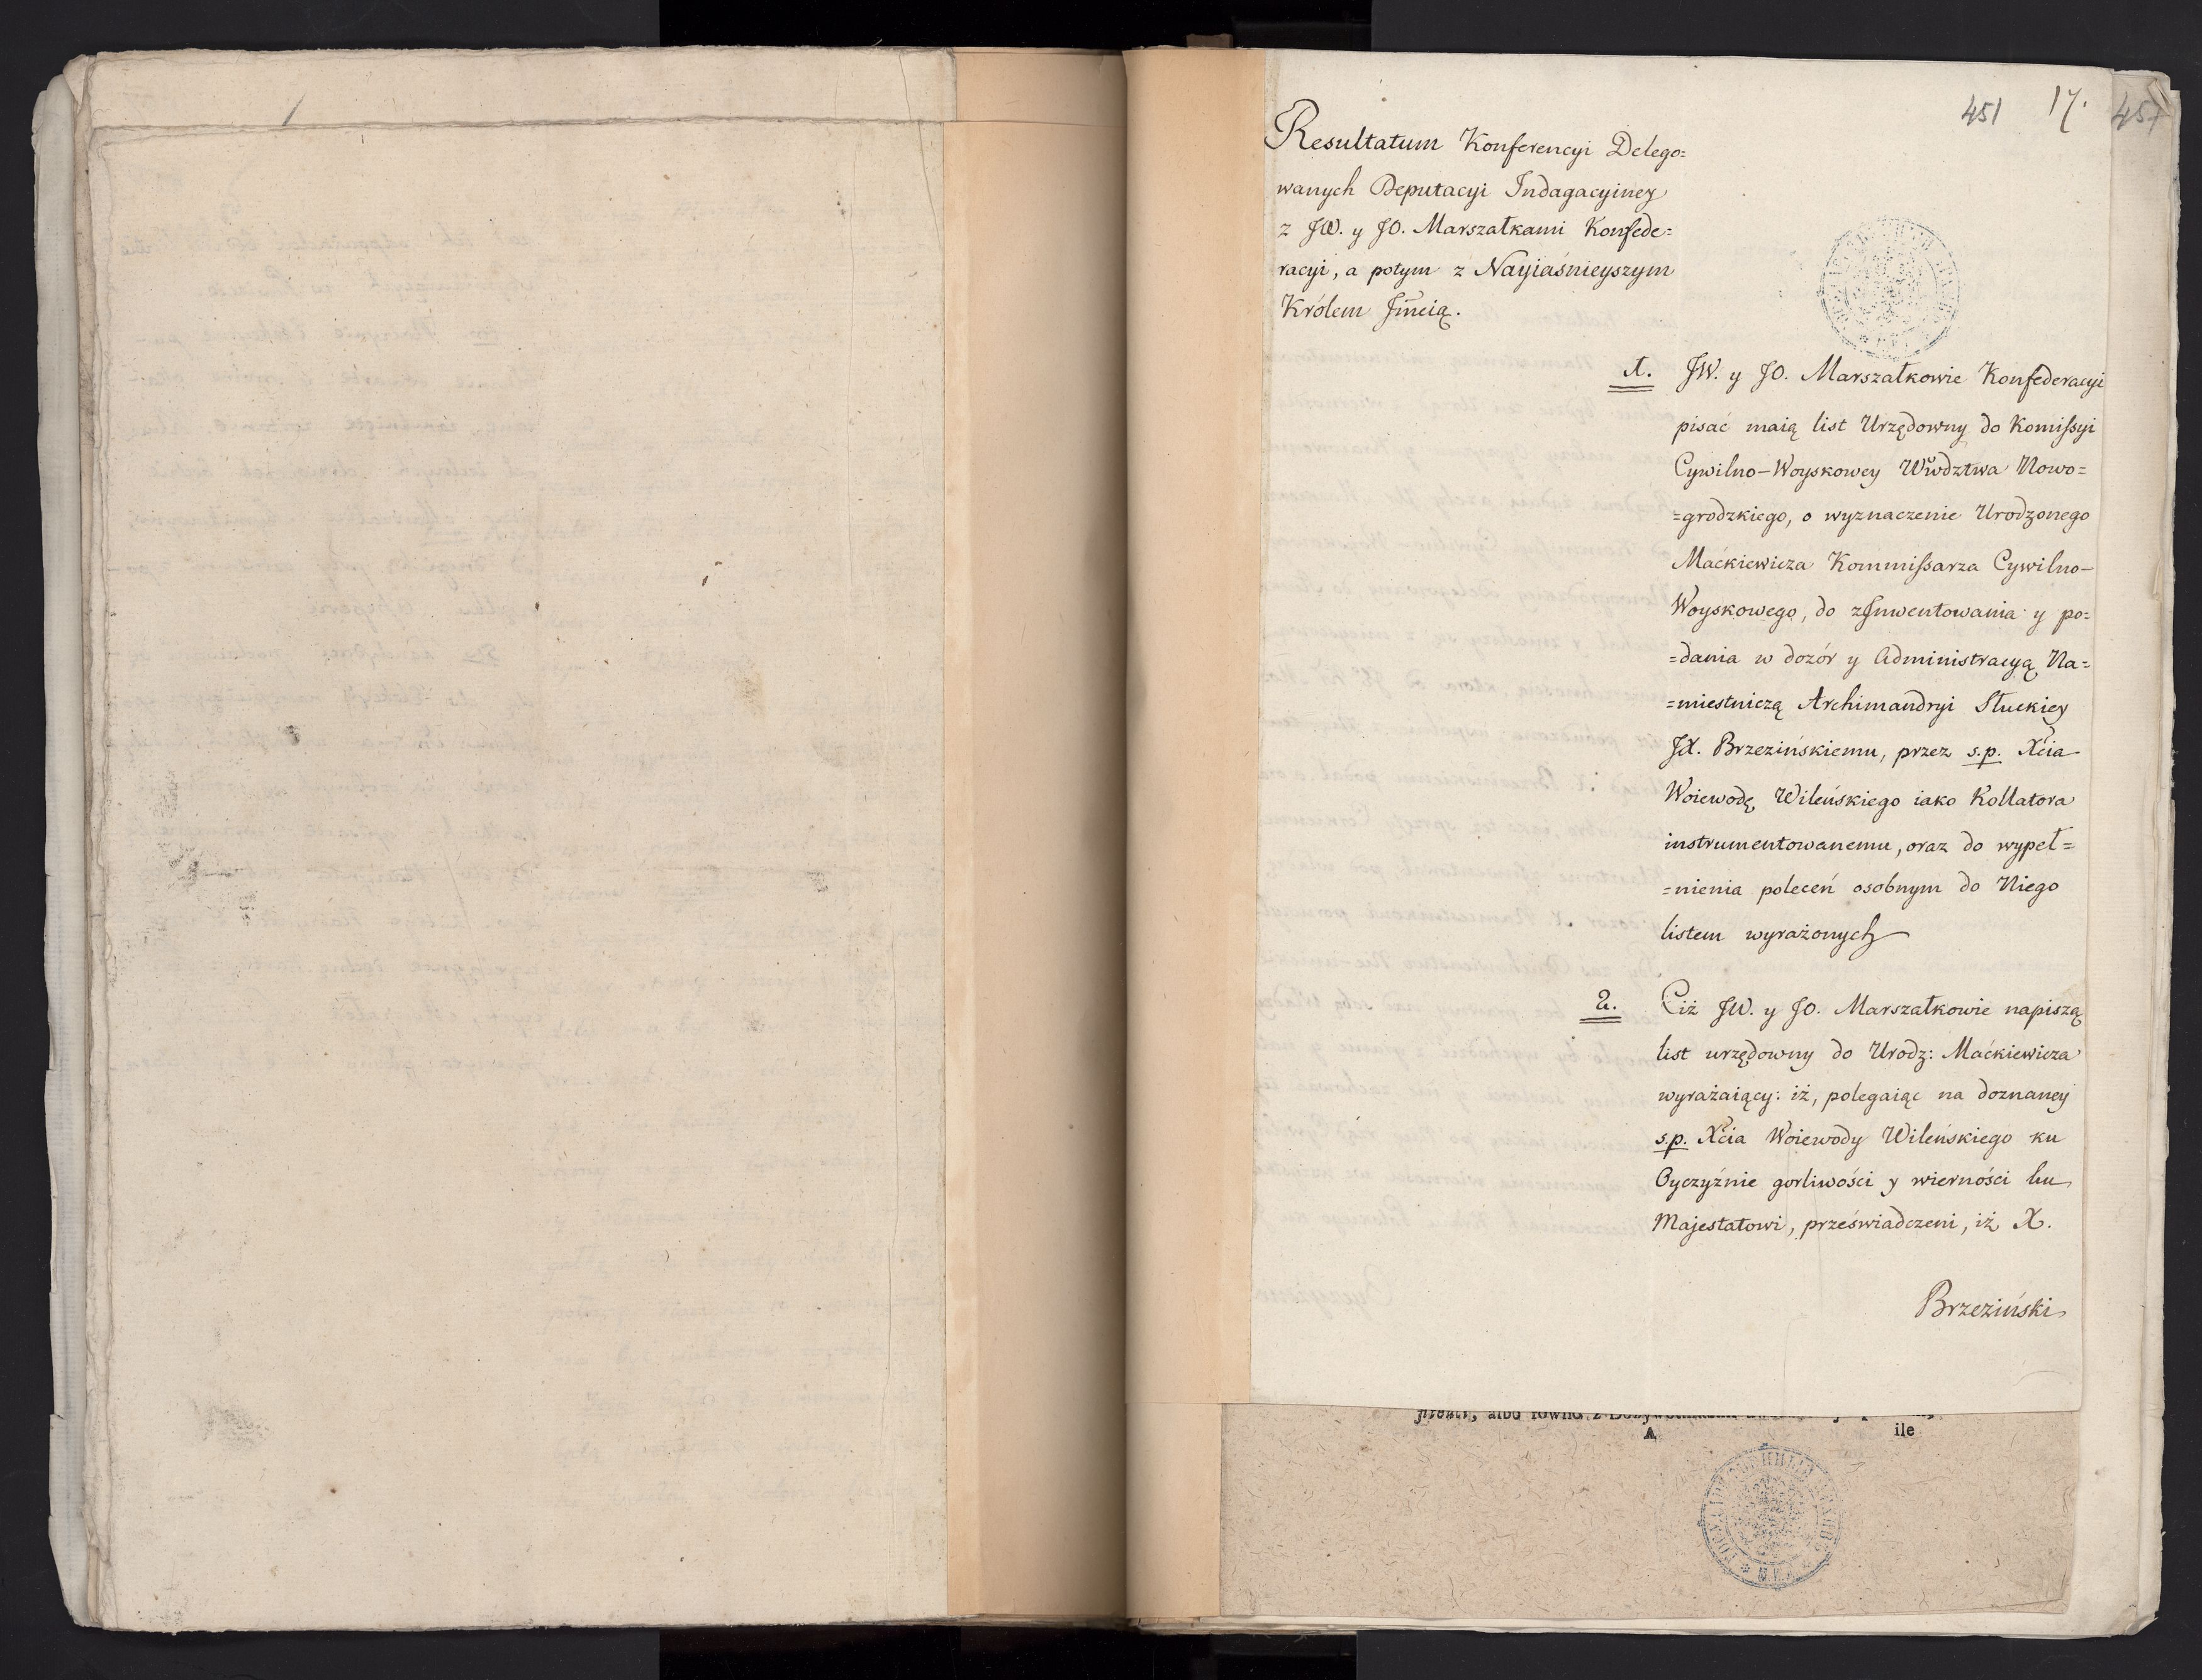 451 17. 457
Resultatum Konferencyi Delego=
wanych Deputacyi Indagacyiney
z JW. y JO. Marszałkami Konfede=
racyi, a potym z Nayiaśnieyszym
Królem Jmcią.
1. JW. y JO. Marszałkowie Konfederacyi
pisać maią list Urzędowny do Komissyi
Cywilno-Woyskowey Wwdztwa Nowo=
=grodzkiego, o wyznaczenie Urodzonego
Maćkiewicza Kommissarza Cywilno-
Woyskowego, do zJnwentowania y po=
=dania w dozór y Administracyą Na=
=miestniczą Archimandryi Słuckiey
JX. Brzezińskiemu, przez s.p. Xcia
Woiewodę Wileńskiego iako Kollatora
instrumentowanemu, oraz do wypeł=
=nienia poleceń osobnym do Niego
listem wyrażonych
2. Ciż JW. y JO. Marszałkowie napiszą
list urzędowny do Urodz: Maćkiewicza
wyrażaiący: iż, polegaiąc na doznaney
s.p. Xcia Woiewody Wileńskiego ku
Oyczyźnie gorliwości y wierności ku
Majestatowi, przeświadczeni, iż X.
Brzeziński
albo równo z
A ile